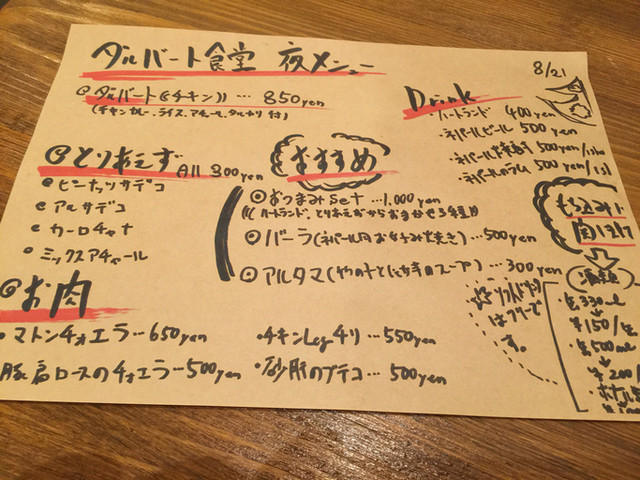 ダルバート食堂 夜メニュー
8/21
ダルバート(チキン) … 850yen
(チキンカレー、ライス、アチャール、タルカリ付)
Drink
・ハートランド 400yen
・ネパールビール 500yen
・ネパール 500yen
・ネパールラム 500yen
とりあえず All 300yen
ピーナッツサデコ
アルサデコ
カーロチャナ
ミックスアチャール
おすすめ
おつまみSet … 1,000yen
(ハートランド、とりあえずからおまかせ3種)
バーラ(ネパール風お好み焼き) … 500yen
アルタマ(じゃがいもとたけのこのスープ) … 300yen
お肉
・マトンチョエラ … 650yen
豚肩ロースのチョエラ … 500yen
・チキンLegチリ … 550yen
・砂肝のブテコ … 500yen
ソフトドリンク
はフリーで
す。
・缶330ml
¥150/缶
・缶500ml
¥200/
・ボトル